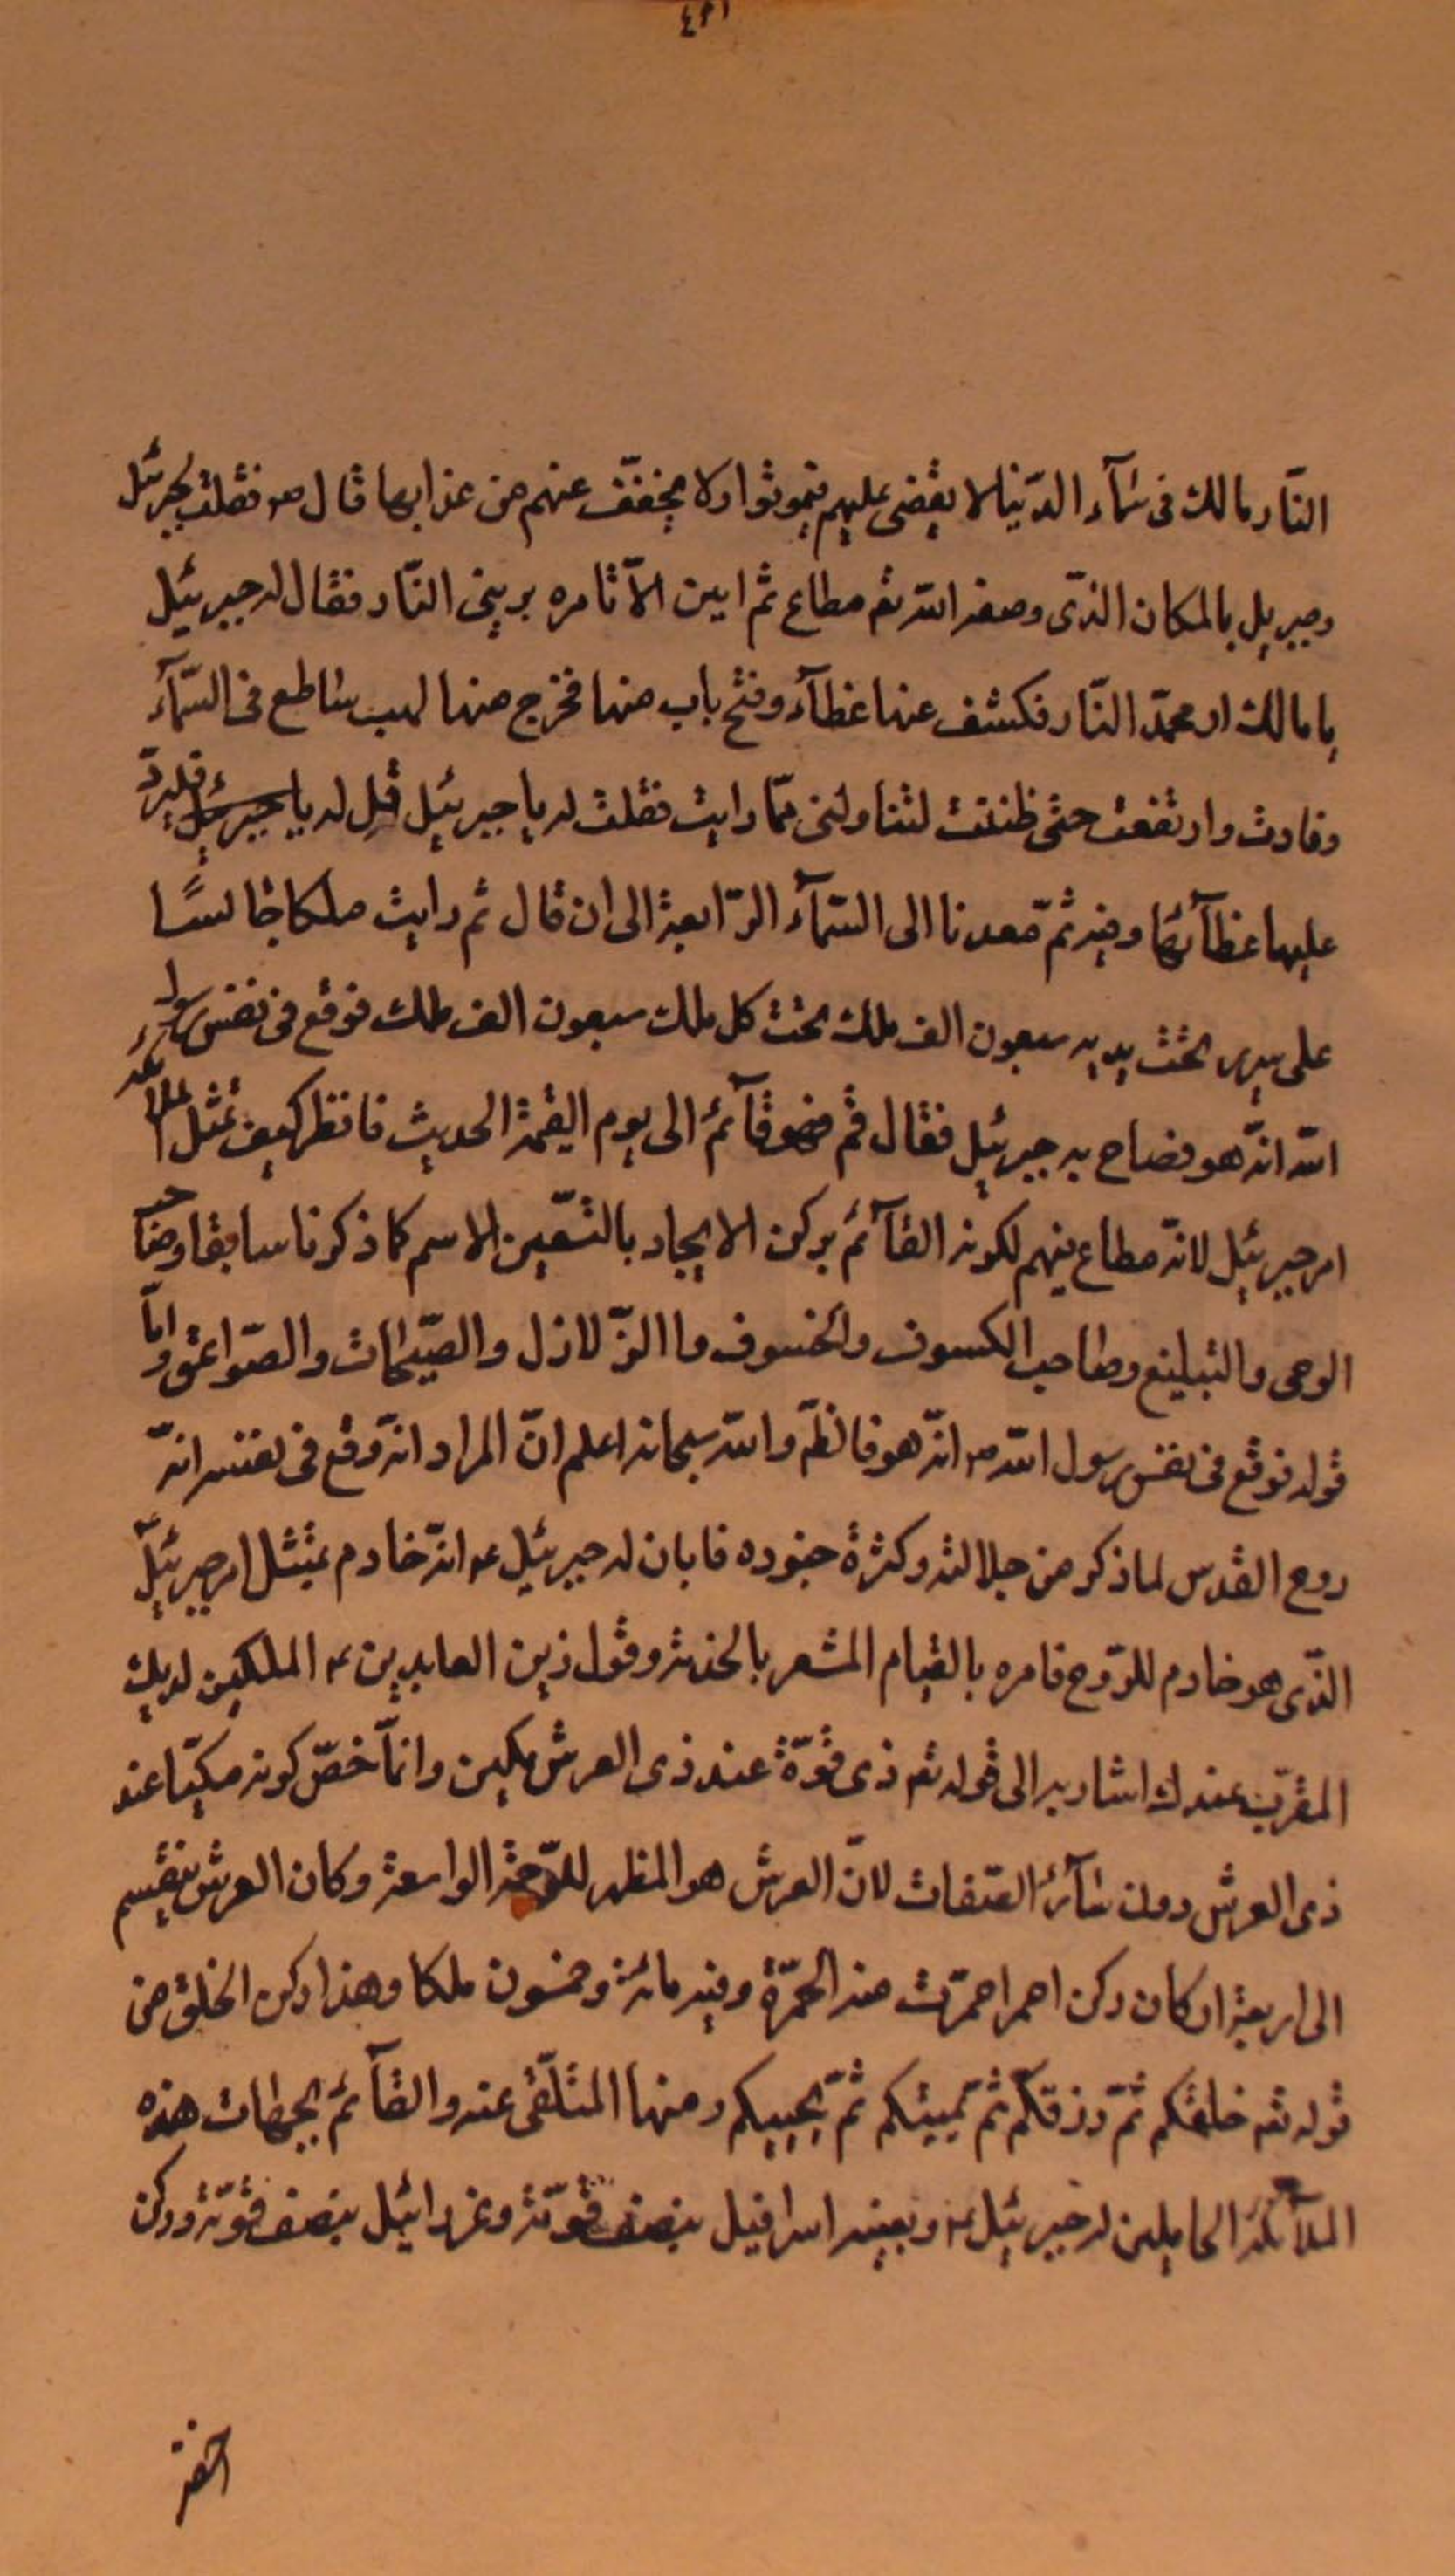 النّار مالك فى سمآء الدّنيا لا يقضى عليهم فيموتوا ولا يخفّف عنهم من عذابها قال ص فقلت لجبرئيل
وجبريل بالمكان الذّى وصفه الله تع مطاع ثم امين الاّ تامره يرينى النّار فقال له جبرئيل
يا مالك ار محمّد النّار فكشف عنها غطآء وفتح باب منها فخرج منها لهب ساطع فى السّمآء
وفارت وارتفعت حتّى ظننت لتتناولنى ممّا رايت فقلت له يا جبرئيل قل له فليردّ
عليها غطآئها وفيه ثمّ صعدنا الى السّمآء الرّابعة الى ان قال ثم رايت ملكا جالسًا
على سرير تحت يديه سبعون الف ملك تحت كل ملك سبعون الف ملك فوقع فى نفس رسول
الله انّه هو فصاح به جبرئيل فقال قم فهو قآئم الى يوم القيمة الحديث فانظر كيف تمثل الملائكة
امر جبرئيل لانّه مطاع فيهم لكونه القآئم بركن الايجاد بالتّعيين الاسم كما ذكرنا سابقا وصاحب
الوحى والتبليغ وصاحب الكسوف والخسوف وا الزّلازل والصّيحات والصّواعق وامّا
قوله فوقع فى نفس رسول الله ص انّه هو فالظّم والله سبحانه اعلم انّ المراد انّه وقع فى نفسه انّه
روح القدس لما ذكر من جلالته وكثرة جنوده فابان له جبرئيل ع انّه خادم يمتثل امر جبرئيل
الذّى هو خادم للرّوح فامره بالقيام المشعر بالخدمة وقول زين العابدين ع الملكين لديك
المقرّب عندك اشار به الى قوله تع ذى قوّة عند ذى العرش مكين وانمّا خصّ كونه مكينا عند
ذى العرش دون سآئر الصّفات لانّ العرش هو المظهر للرّحمة الواسعة وكان العرش ينقسم
الى اربعة اركان ركن احمر احمرّت منه الحمرّة وفيه مائة وخمسون ملكا وهذا ركن الخلق من
قوله تع خلقكم ثمّ رزقكم ثمّ يميتكم ثمّ يحييكم ومنها المتلقّى عنه والقآئم بجهات هذه
الملآئكة الحاملين له جبرئيل ع ويعينه اسرافيل بنصف قوّته وعزرائيل بنصف قوّته وركن